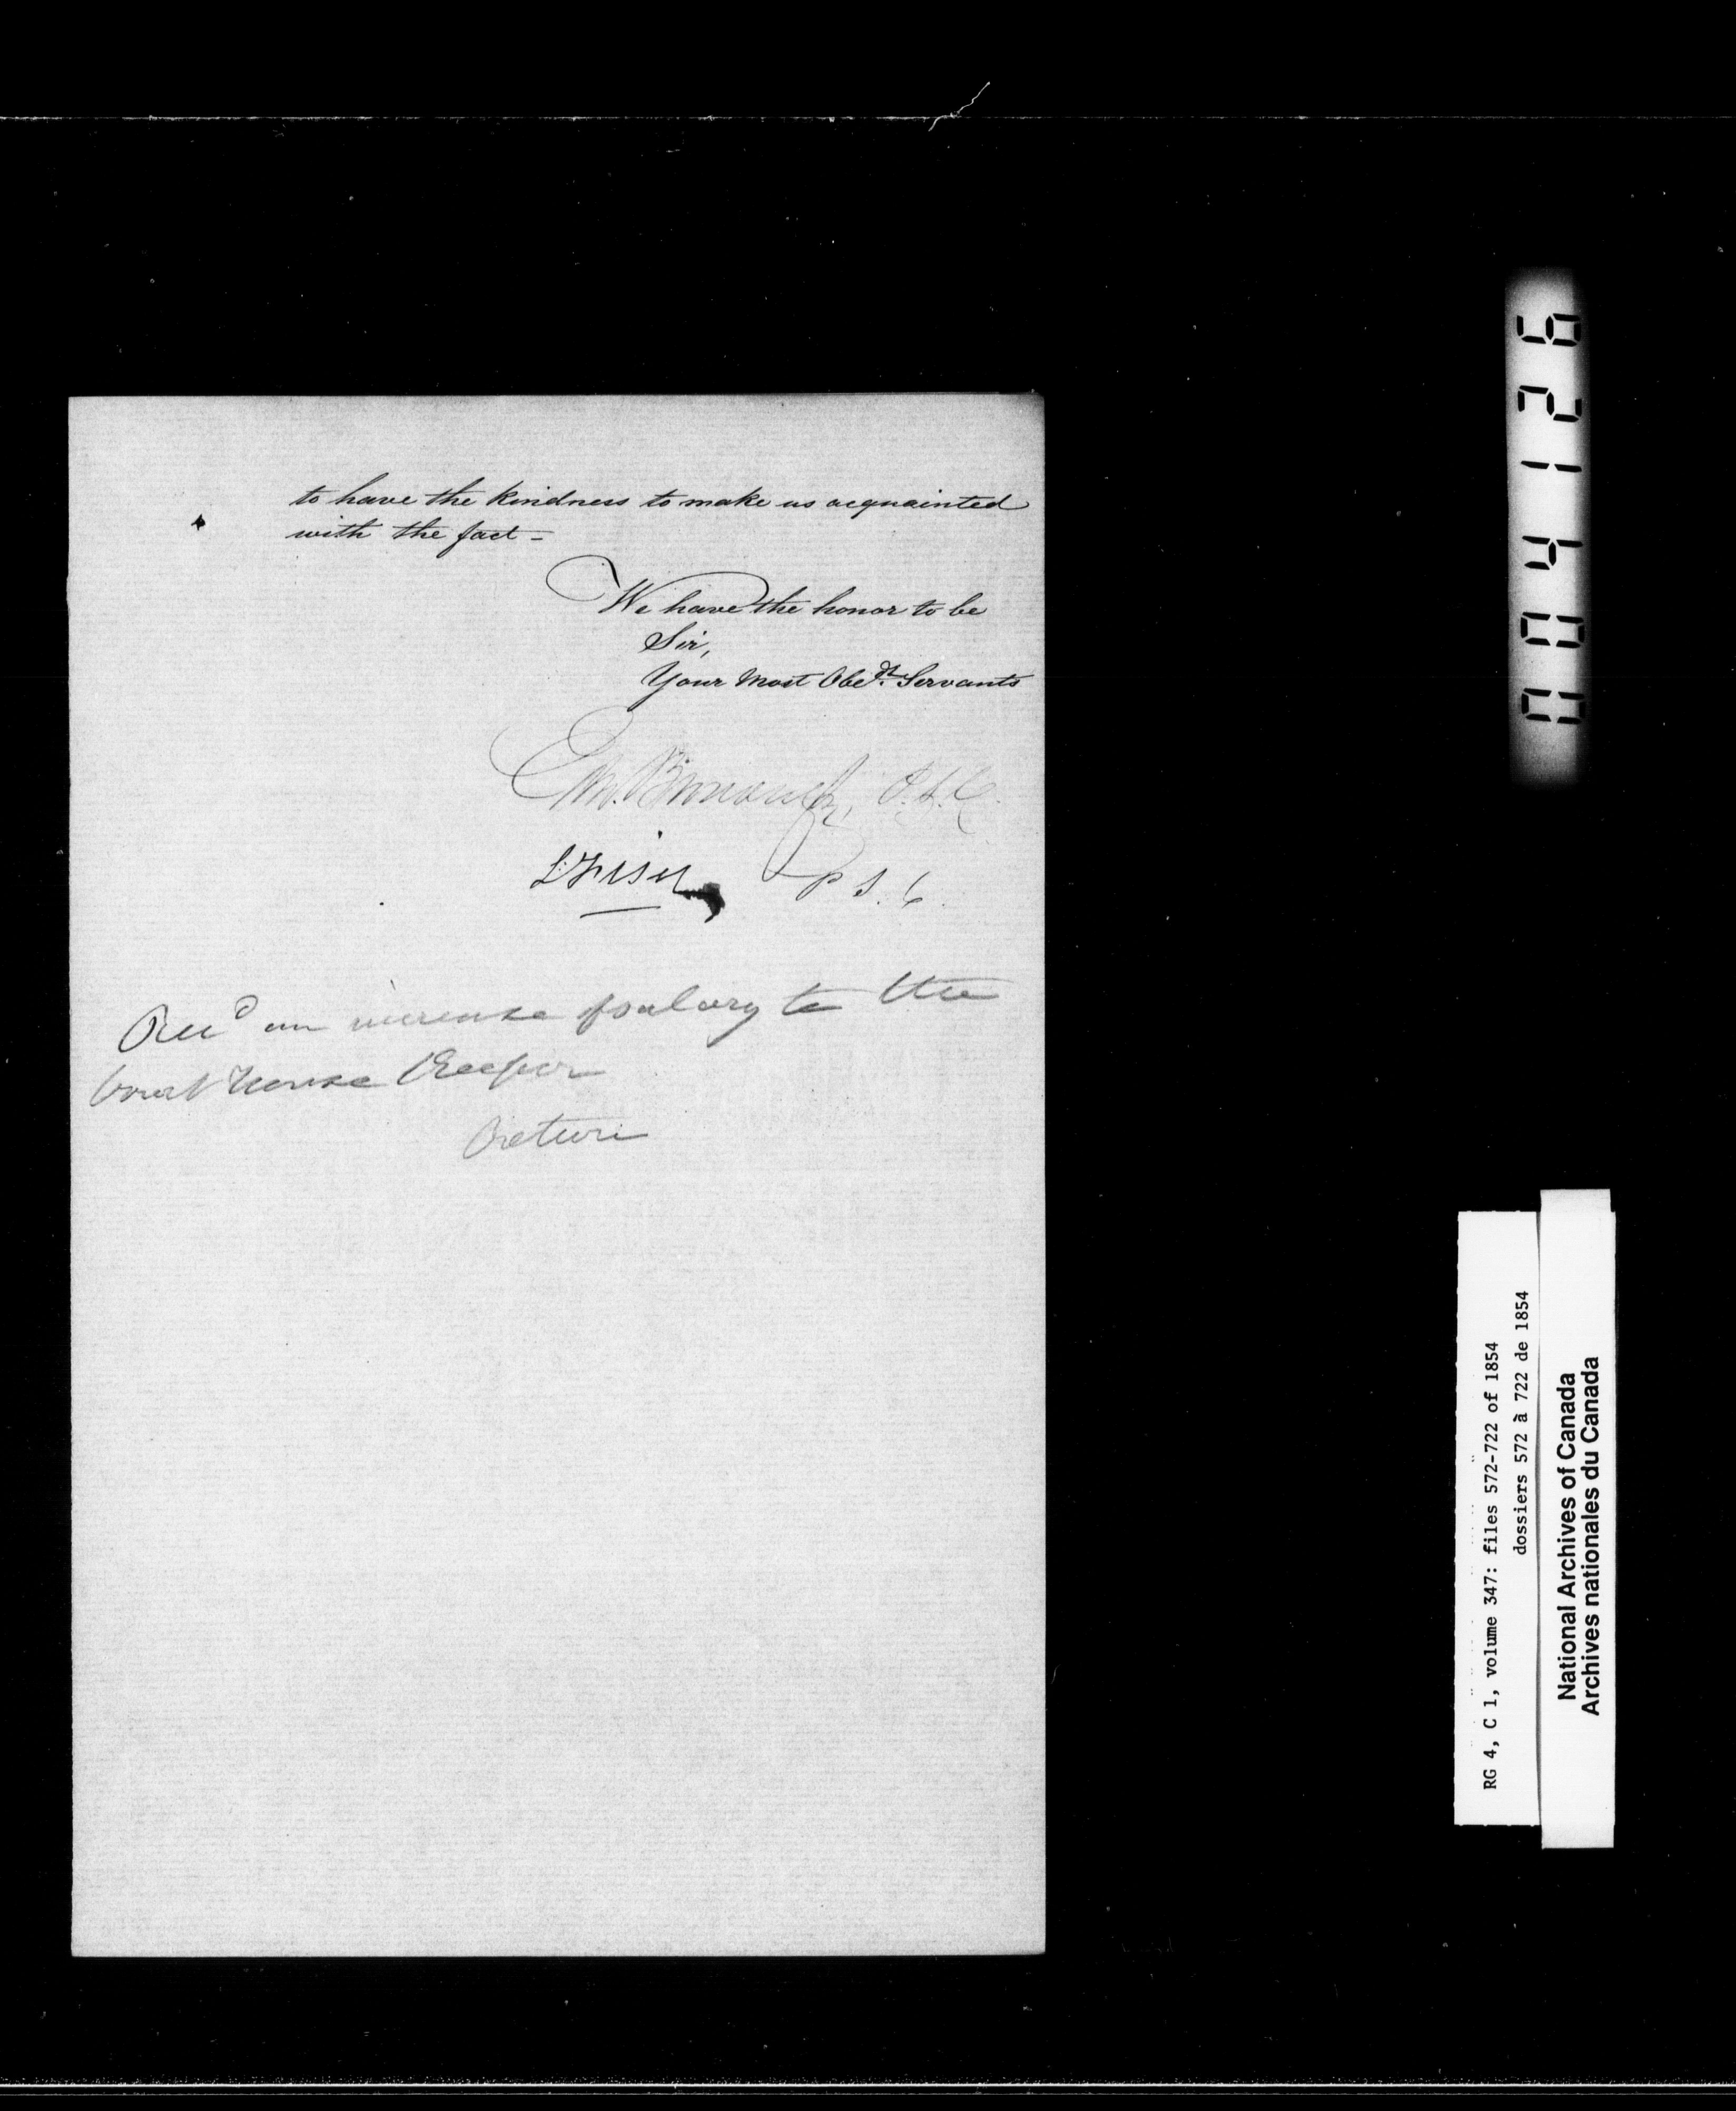 to have the kindness to make us acquainted
with the fact -
We have the honor to be
Sir,
Your Most Obedt. Servants
P. S. C.
L Fiset P S. C.
Recd an increase of salary to the
Court House Keeper
return
004126
RG 4, C 1, volume 347: files 572-722 of 1854
dossiers 572 à 722 de 1854
National Archives of Canada
Archives nationales du Canada